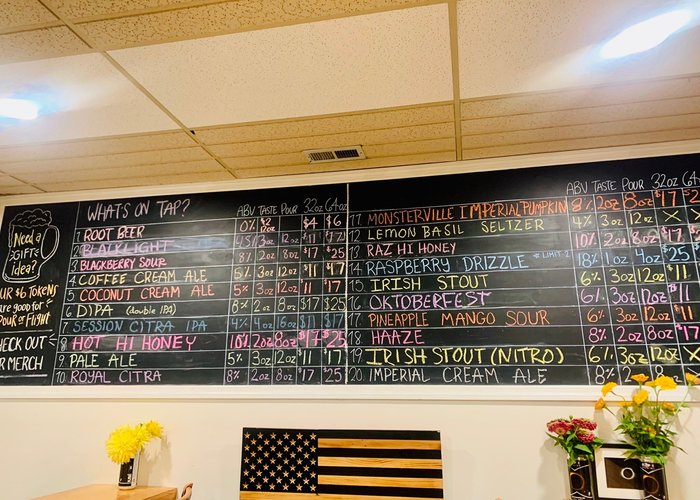 Need a
GIFT
idea?
OUR $6 TOKENS
are good for a
Pour or Flight
CHECK OUT
OUR MERCH
WHAT'S ON TAP?
ABV TASTE POUR 32oz 64oz
1. ROOT BEER 0% $2 $4 $6
2. BLACKLIGHT 4.5% 3oz 12oz $11 $17
3. BLACKBERRY SOUR 8% 2oz 8oz $17 $25
4. COFFEE CREAM ALE 5% 3oz 12oz $11 $17
5. COCONUT CREAM ALE 5% 3oz 12oz $11 $17
6. DIPA (double IPA) 8% 2oz 8oz $17 $25
7. SESSION CITRA IPA 4% 4oz 16oz $11 $17
8. HOT HI HONEY 10% 2oz 8oz $17 $25
9. PALE ALE 5% 3oz 12oz $11 $17
10. ROYAL CITRA 8% 2oz 8oz $17 $25
ABV TASTE POUR 32oz 64oz
11. MONSTERVILLE IMPERIAL PUMPKIN 8% 2oz 8oz $17
12. LEMON BASIL SELTZER 4% 3oz 12oz X
13. RAZ HI HONEY 10% 2oz 8oz $17
14. RASPBERRY DRIZZLE * LIMIT 2 18% 1oz 4oz X
15. IRISH STOUT 6% 3oz 12oz $11
16. OKTOBERFEST 6% 3oz 12oz $11
17. PINEAPPLE MANGO SOUR 6% 3oz 12oz $11
18. HAAZE 8% 2oz 8oz $17
19. IRISH STOUT (NITRO) 6% 3oz 12oz X
20. IMPERIAL CREAM ALE 8% 2oz 8oz